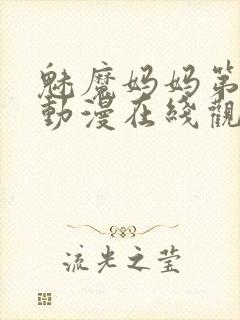 魅魔妈妈第
動漫在线觀
流光之莹